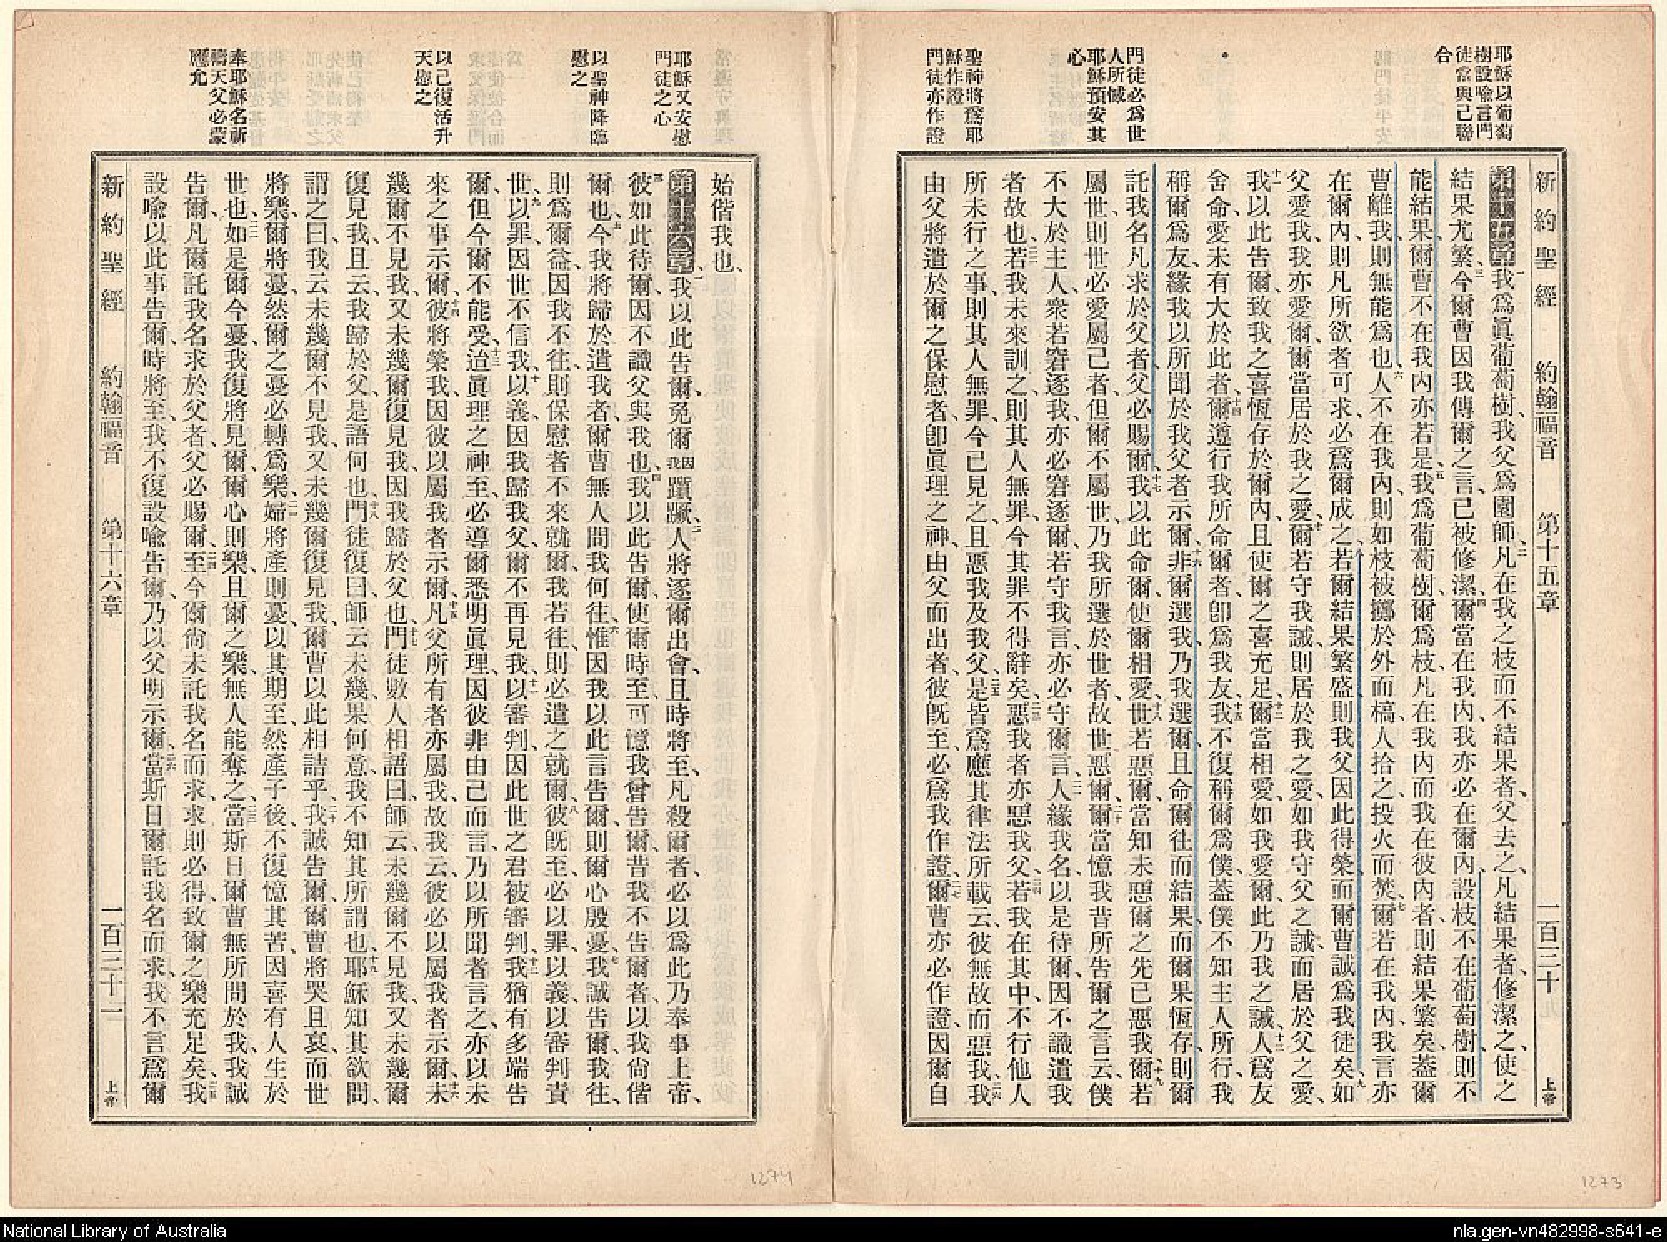 耶穌以葡萄
樹設喻言門
徒當與己聯
合
門徒必爲世
人所憾
耶穌預安其
心
聖神將爲耶
穌作證
門徒亦作證
新約聖經 約翰福音 第十五章 一百三十 上帝
第十五章 一我爲眞葡萄樹、我父爲園師、二凡在我之枝而不結果者、父去之、凡結果者、修潔之、使之
結果尤繁、三今爾曹因我傳爾之言、已被修潔、四爾當在我內、我亦必在爾內、設枝不在葡萄樹、則不
能結果、爾曹不在我內亦若是、五我爲葡萄樹、爾爲枝、凡在我內、而我在彼內者、則結果繁矣、蓋爾
曹離我、則無能爲也、六人不在我內、則如枝被擲於外而槁、人拾之投火而焚、七爾若在我內、我言亦
在爾內、則凡所欲者可求、必爲爾成之、八若爾結果繁盛、則我父因此得榮、而爾曹誠爲我徒矣、九如
父愛我、我亦愛爾、爾當居於我之愛、十爾若守我誡、則居於我之愛、如我守父之誡、而居於父之愛、
十一我以此告爾、致我之喜恆存於爾內、且使爾之喜充足、十二爾當相愛、如我愛爾、此乃我之誡、十三人爲友
舍命、愛未有大於此者、十四爾遵行我所命爾者、卽爲我友、十五我不復稱爾爲僕、蓋僕不知主人所行、我
稱爾爲友、緣我以所聞於我父者示爾、十六非爾選我、乃我選爾、且命爾往而結果、而爾果恆存、則爾
託我名凡求於父者、父必賜爾、十七我以此命爾、使爾相愛、十八世若惡爾、當知未惡爾之先、已惡我、十九爾若
屬世、則世必愛屬己者、但爾不屬世、乃我所選於世者、故世惡爾、二十爾當憶我昔所告爾之言云、僕
不大於主人、衆若窘逐我、亦必窘逐爾、若守我言、亦必守爾言、二一人緣我名、以是待爾、因不識遣我
者故也、二二若我未來訓之、則其人無罪、今其罪不得辭矣、二三惡我者、亦惡我父、二四若我在其中、不行他人
所未行之事、則其人無罪、今已見之、且惡我及我父、二五是皆爲應其律法所載云、彼無故而惡我、二六我
由父將遣於爾之保慰者、卽眞理之神、由父而出者、彼旣至、必爲我作證、二七爾曹亦必作證、因爾自
1273
耶穌又安慰
門徒之心
以聖神降臨
慰之
以己復活升
天慰之
奉耶穌名祈
禱天父必蒙
應允
始偕我也、
第十六章 一我以此告爾、免爾因我躓蹶、二人將逐爾出會、且時將至、凡殺爾者、必以爲此乃奉事上帝、
三彼如此待爾、因不識父與我也、四我以此告爾、使爾時至、可憶我曾告爾、昔我不告爾者、以我尙偕
爾也、五今我將歸於遣我者、爾曹無人問我何往、六惟因我以此言告爾、則爾心殷憂、七我誠告爾、我往、
則爲爾益、因我不往、則保慰者不來就爾、我若往、則必遣之就爾、八彼旣至、必以罪以義以審判責
世、九以罪、因世不信我、十以義、因我歸我父、爾不再見我、十一以審判、因此世之君被審判、十二我猶有多端告
爾、但今爾不能受、十三迨眞理之神至、必導爾悉明眞理、因彼非由己而言、乃以所聞者言之、亦以未
來之事示爾、十四彼將榮我、因彼以屬我者示爾、十五凡父所有者、亦屬我、故我云、彼必以屬我者示爾、十六未
幾爾不見我、又未幾爾復見我、因我歸於父也、十七門徒數人相語曰、師云、未幾爾不見我、又未幾爾
復見我、且云、我歸於父、是語何也、十八門徒復曰、師云未幾、果何意、我不知其所謂也、十九耶穌知其欲問、
謂之曰、我云、未幾爾不見我、又未幾爾復見我、爾曹以此相詰乎、二十我誠告爾、爾曹將哭且哀、而世
將樂、爾將憂、然爾之憂必轉爲樂、二一婦將產則憂、以其期至、然產子後、不復憶其苦、因喜有人生於
世也、二二如是爾今憂、我復將見爾、爾心則樂、且爾之樂、無人能奪之、二三當斯日、爾曹無所問於我、我誠
告爾、凡爾託我名求於父者、父必賜爾、二四至今爾尙未託我名而求、求則必得、致爾之樂充足矣、二五我
設喻以此事告爾、時將至、我不復設喻告爾、乃以父明示爾、二六當斯日、爾託我名而求、我不言爲爾
新約聖經 約翰福音 第十六章 一百三十一 上帝
1274
National Library of Australia
nla.gen-vn482998-s641-e